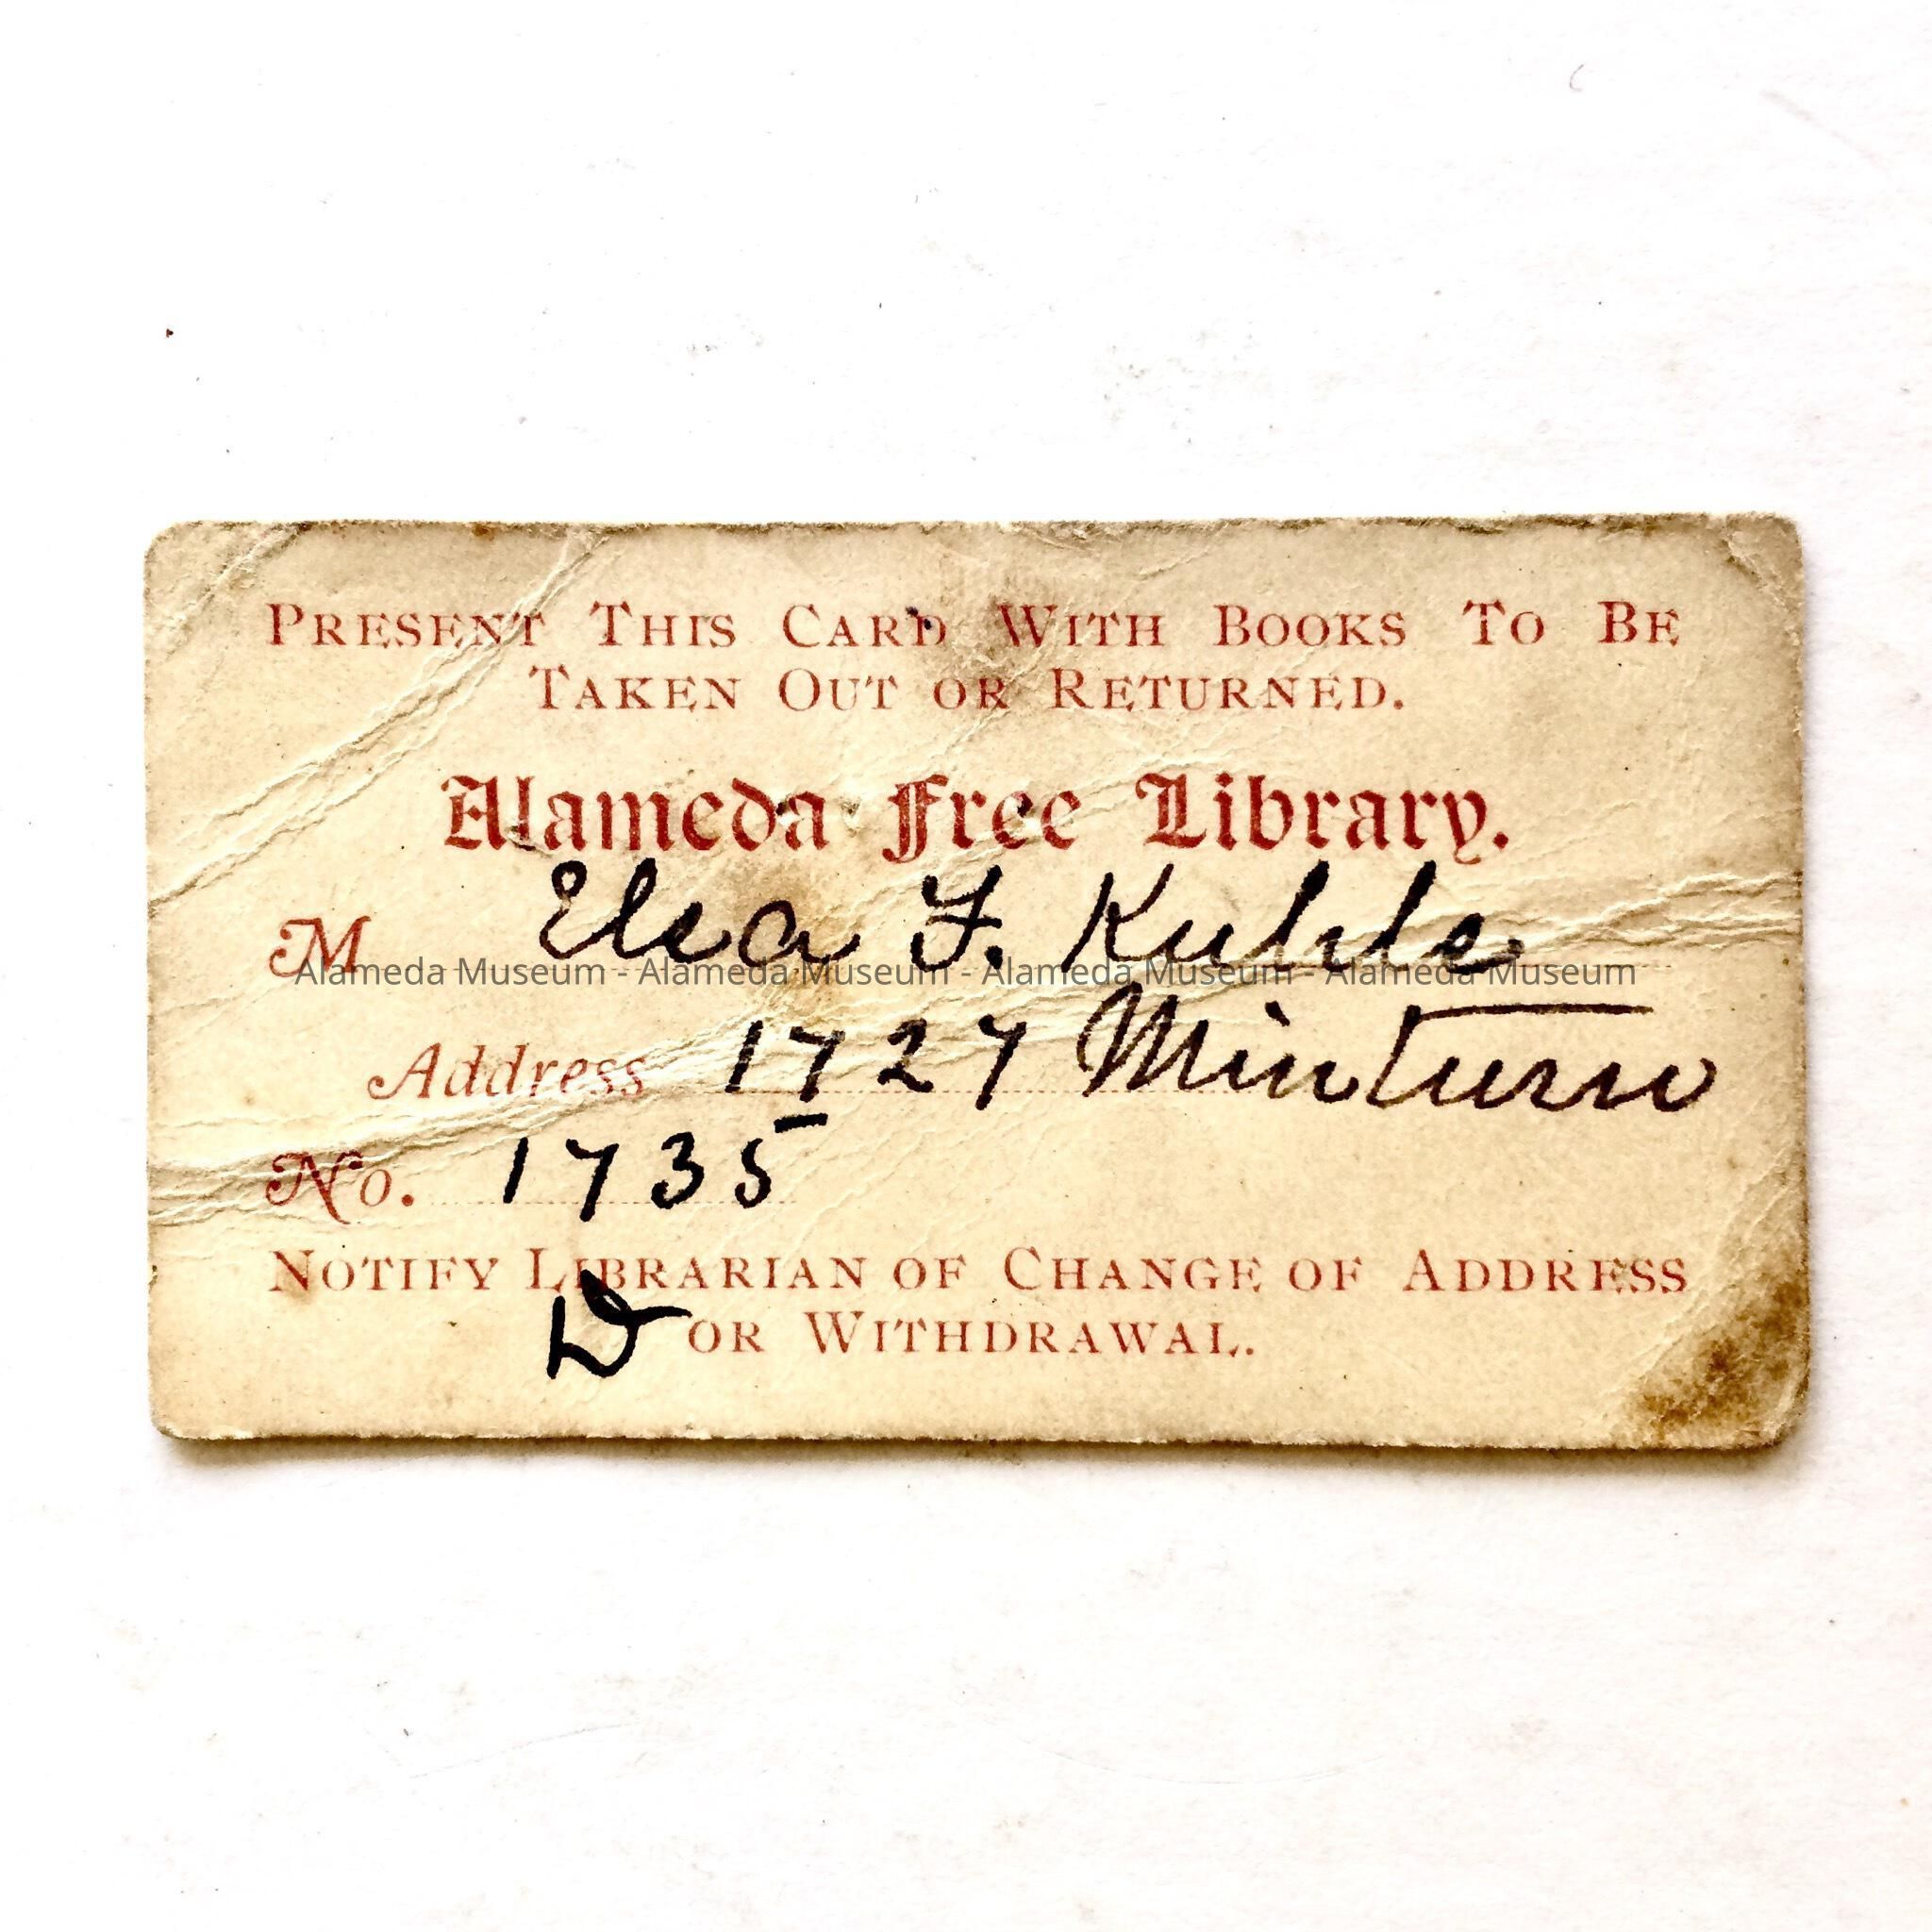 PRESENT THIS CARD WITH BOOKS TO BE
TAKEN OUT OR RETURNED.
Alameda Free Library.
M Elsa F. Kuhle
Alameda Museum - Alameda Museum - Alameda Museum - Alameda Museum
Address 1727 Minturn
No. 1735
NOTIFY LIBRARIAN OF CHANGE OF ADDRESS
D OR WITHDRAWAL.